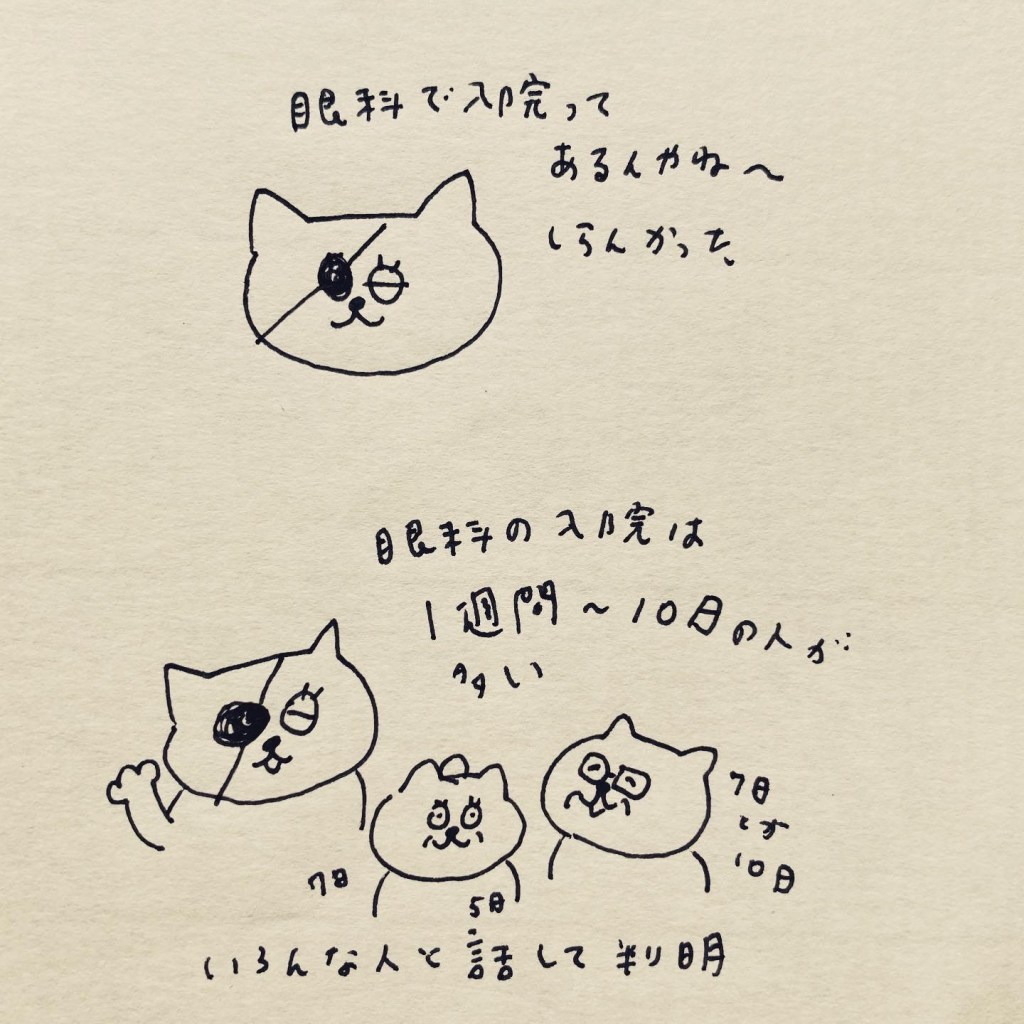 眼科で入院って
あるんやね〜
しらんかった
眼科の入院は
1週間〜10日の人が
多い
7日
5日
7日
とか
10日
いろんな人と話して判明